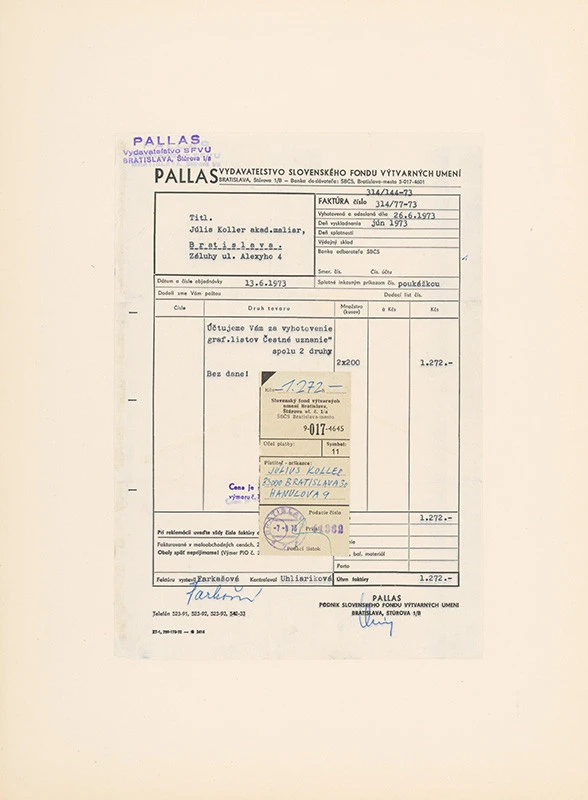 PALLAS
Vydavateľstvo SFVU
BRATISLAVA, Štúrova 1/B
PALLAS VYDAVATEĽSTVO SLOVENSKÉHO FONDU VÝTVARNÝCH UMENÍ
BRATISLAVA, Štúrova 1/B – Banka dodávateľa: ŠBČS, Bratislava-mesto 5-017-4601
314/144-73
FAKTÚRA číslo 314/77-73
Vyhotovená a odoslaná dňa 26.6.1973
Deň vyskladnenia jún 1973
Deň splatnosti
Výdajný sklad
Banka odberateľa ŠBČS
Smer. čís. Čís. účtu
Titl.
Július Koller akad.maliar,
Bratislava.
Záluhy ul. Alexyho 4
Dátum a číslo objednávky 13.6.1973
Splatné inkasným príkazom čís. poukážkou
Dodali sme Vám poštou
Dodací list čís.
Číslo Druh tovaru Množstvo (kusov) à Kčs Kčs
Účtujeme Vám za vyhotovenie
graf.listov Čestné uznanie"
spolu 2 druhy
2x200 1.272.-
Bez dane!
Kčs 1.272.—
Slovenský fond výtvarných
umení Bratislava,
Štúrova ul. č. 1/a
ŠBČS Bratislava-mesto
9-017-4645
Účel platby: Symbol:
11
Platiteľ - adresa:
JÚLIUS KOLLER
BRATISLAVA
HANULOVA 9
Cena je
výmeru č.
Podacie číslo
BRATISLAVA
Podací lístok
1.272.-
Pri reklamácii uveďte vždy číslo faktúry
Fakturované v maloobchodných cenách.
Obaly späť neprijímame! (Výmer PIO č.
bal. materiál
Porto
Faktúru vystavil Farkašová Kontroloval Uhliariková Úhrn faktúry 1.272.-
PALLAS
PODNIK SLOVENSKÉHO FONDU VÝTVARNÝCH UMENÍ
BRATISLAVA, ŠTÚROVA 1/B
Telefón 523-91, 523-92, 523-93, 342-33